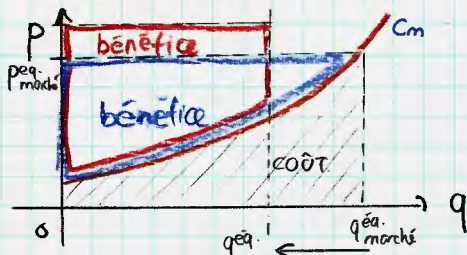 p
bénéfice
Cm
p éq. marché
bénéfice
COÛT
0
q éq.
q éq. marché
q